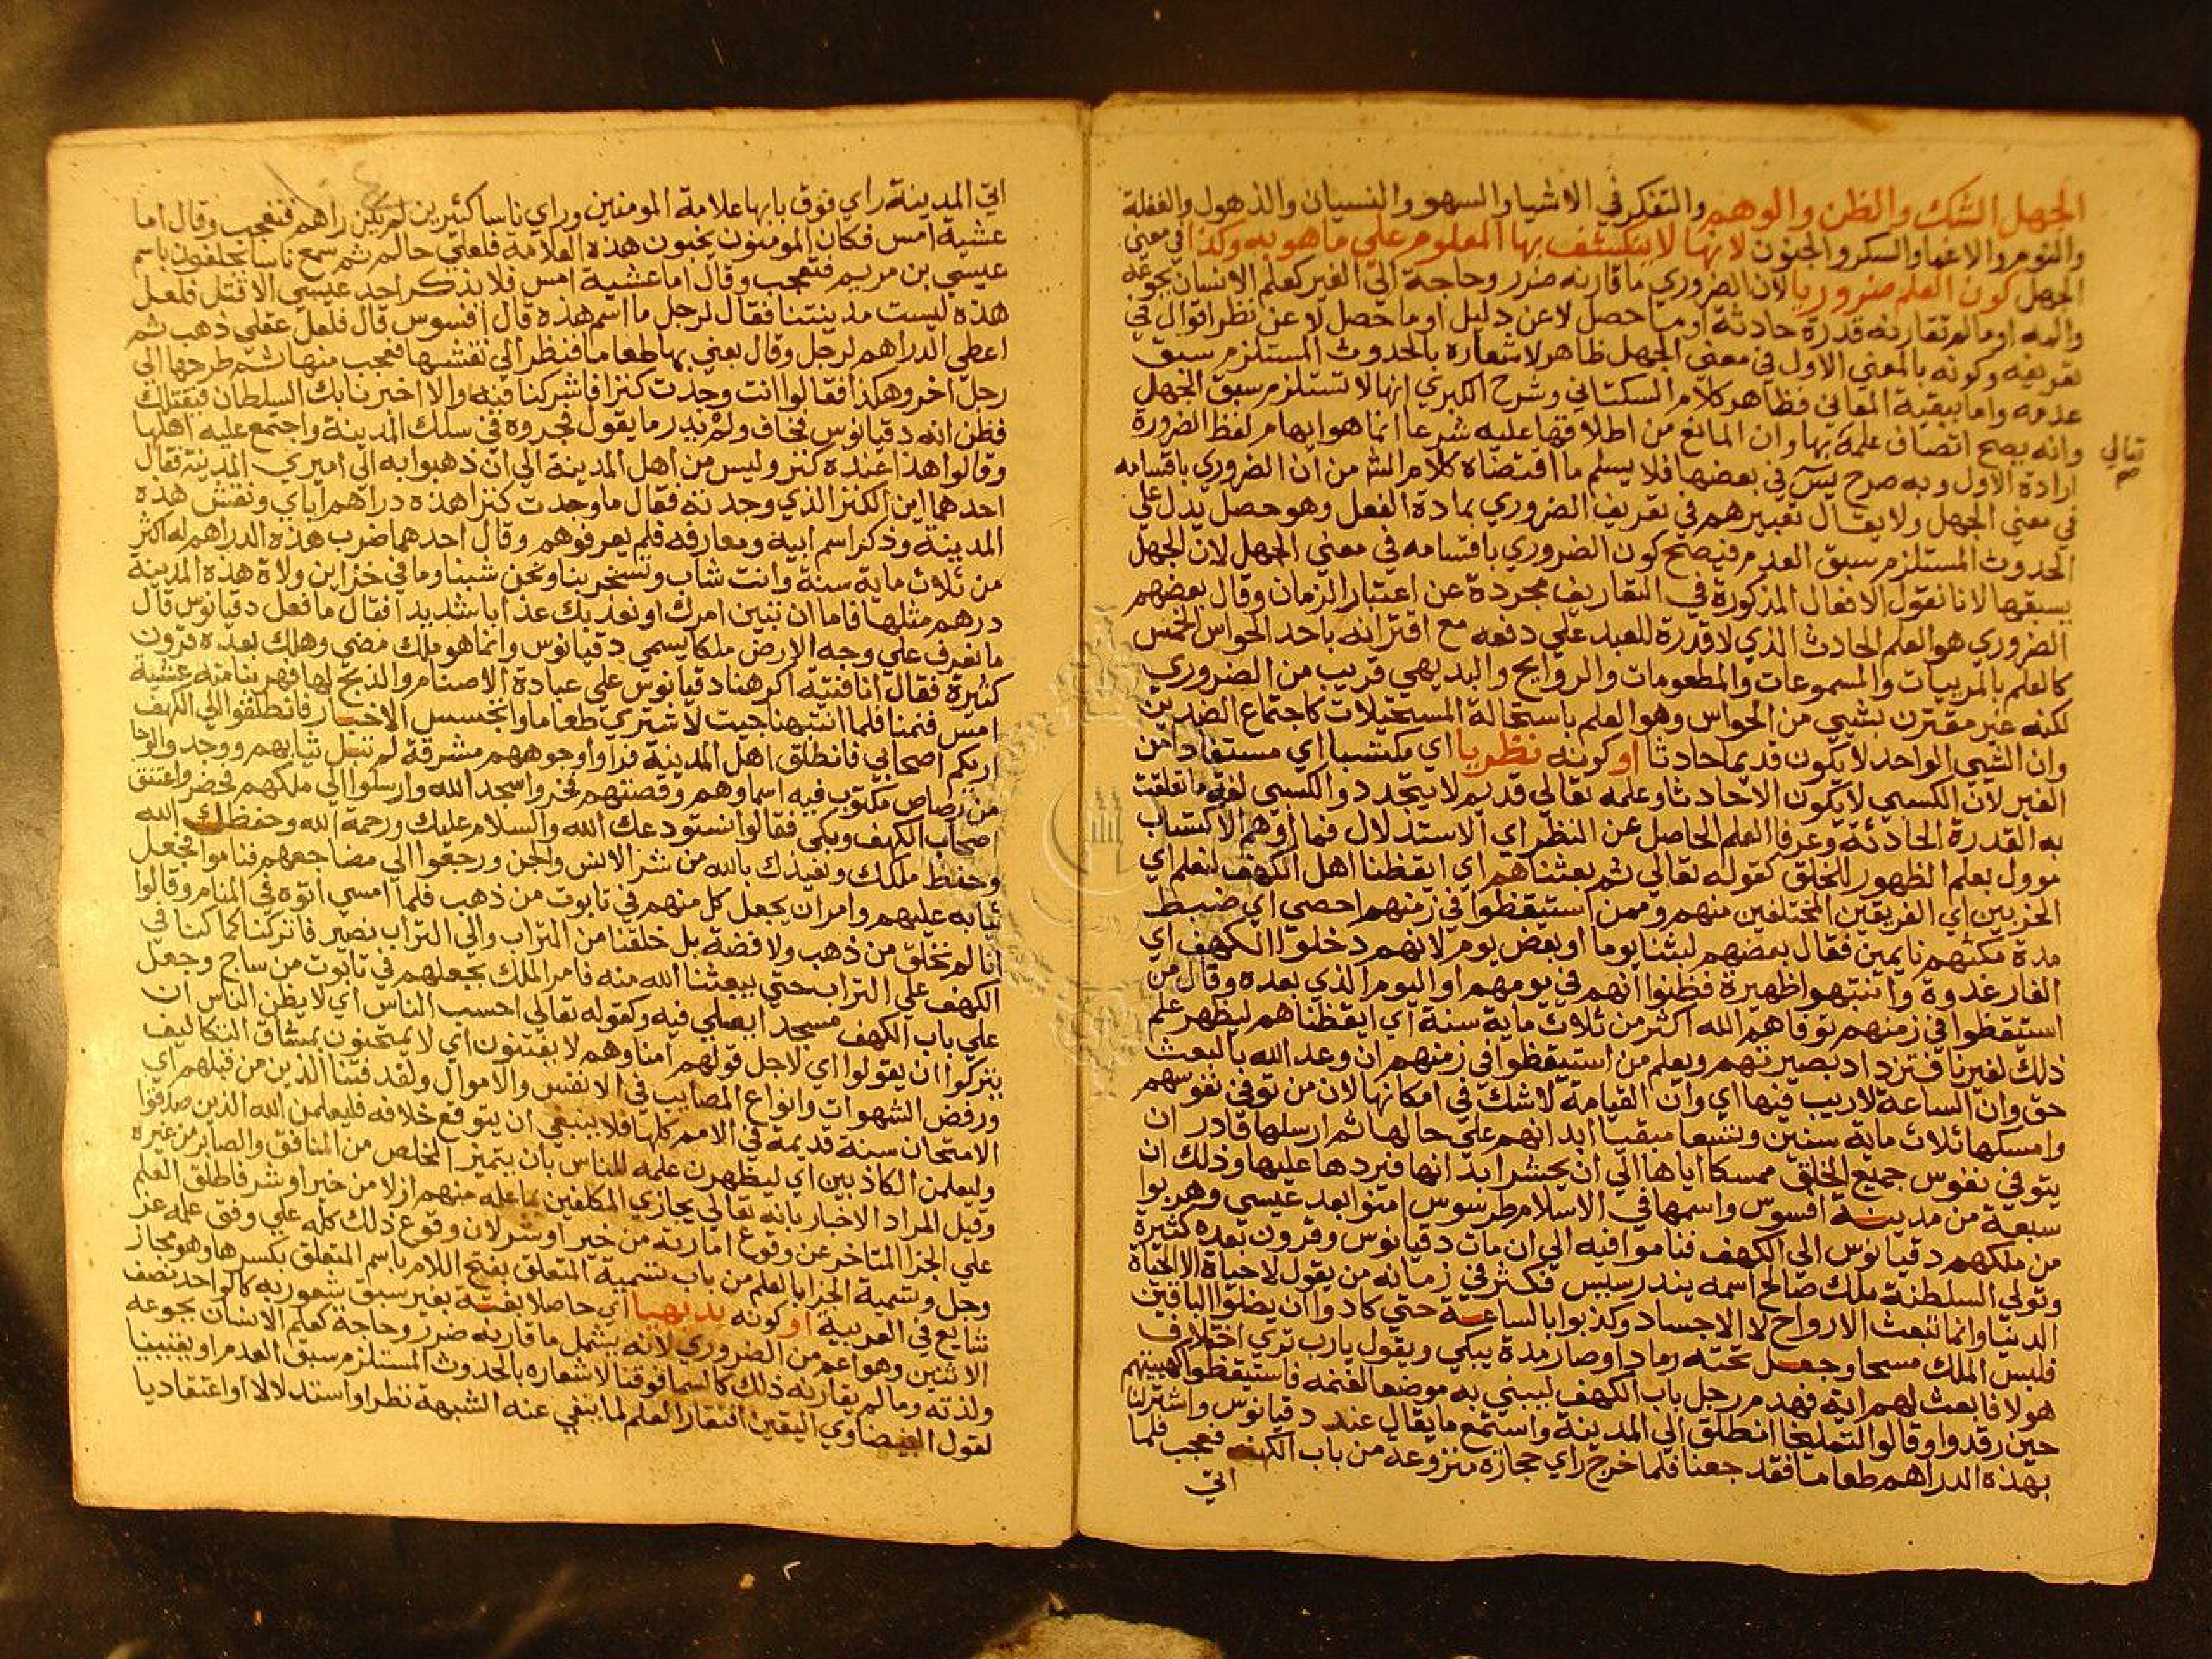 الجهل الشك والظن والوهم والتفكر في الاشيا والسهو والنسيان والذهول والغفلة
والنوم والاغما والسكر والجنون لانها لا ينكشف بها المعلوم علي ما هو به وكذا في معني
الجهل كون العلم ضروريا لان الضروري ما قارنه ضرر وحاجة الي الغير كعلم الانسان بجوعه
والمه او ما لم تقارنه قدرة حادثة او ما حصل لا عن دليل او ما حصل لا عن نظر اقوال في
تعريفه وكونه بالمعني الاول في معني الجهل ظاهر لاشعاره بالحدوث المستلزم سبق
عدمه واما ببقية المعاني فظاهر كلام السكتاني وشرح الكبري انها لا تستلزم سبق الجهل
وانه يصح اتصاف علمه تعالي بها وان المانع من اطلاقها عليه شرعا انما هو ايهام لفظ الضرورة
ارادة الاول وبه صرح يس في بعضها فلا يسلم ما اقتضاه كلام الش من ان الضروري باقسامه
في معني الجهل ولا يقال تعبيرهم في تعريف الضروري بمادة الفعل وهو حصل يدل علي
الحدوث المستلزم سبق العدم فيصح كون الضروري باقسامه في معني الجهل لان الجهل
يسبقها لانا نقول الافعال المذكورة في التعاريف مجردة عن اعتبار الزمان وقال بعضهم
الضروري هو العلم الحادث الذي لا قدرة للعبد علي دفعه مع اقترانه باحد الحواس الخمس
كالعلم بالمريبات والمسموعات والمطعومات والروايح والبديهي قريب من الضروري
لكنه غير مقترن بشيي من الحواس وهو العلم باستحالة المستحيلات كاجتماع الضدين
وان الشيي الواحد لا يكون قديما حادثا او كونه نظريا اي مكتسبا اي مستفادا من
الغير لان الكسبي لا يكون الا حادثا وعلمه تعالي قديم لا يتجدد والكسبي لغة ما تعلقت
به القدرة الحادثة وعرفا العلم الحاصل عن النظر اي الاستدلال فما اوهم الاكتساب
موول بعلم الظهور للخلق كقوله تعالي ثم بعثناهم اي ايقظنا اهل الكهف لنعلم اي
الحزبين اي الفريقين المختلفين منهم وممن استيقظوا في زمنهم احصي اي ضبط
مدة مكثهم نايمين فقال بعضهم لبثنا يوما او بعض يوم لانهم دخلوا الكهف اي
الغار غدوة وانتبهوا ظهيرة فظنوا انهم في يومهم او اليوم الذي بعده وقال من
استيقظوا في زمنهم توفاهم الله اكثر من ثلاث ماية سنة اي ايقظناهم ليظهر علم
ذلك لغيرنا فتزداد بصيرتهم ويعلم من استيقظوا في زمنهم ان وعد الله بالبعث
حق وان الساعة لا ريب فيها اي وان القيامة لا شك في امكانها لان من توفي نفوسهم
وامسكها ثلاث ماية سنين وتسعا مبقيا ابدانهم علي حالها ثم ارسلها قادر ان
يتوفي نفوس جميع الخلق ممسكا اياها الي ان يحشر ابدانها فيردها عليها وذلك ان
سبعة من مدينة افسوس واسمها في الاسلام طرسوس امنوا بعد عيسي وهربوا
من ملكهم دقيانوس الي الكهف فناموا فيه الي ان مات دقيانوس وقرون بعده كثيرة
وتولي السلطنة ملك صالح اسمه يندرسيس فكثر في زمانه من يقول لا حياة الا الحياة
الدنيا وانما تبعث الارواح لا الاجساد وكذبوا بالساعة حتي كادوا ان يضلوا الباقين
فلبس الملك مسحا وجعل تحته رمادا وصار مدة يبكي ويقول يا رب تري اختلاف
هولا فابعث لهم اية فهدم رجل باب الكهف ليبني به موضعا لغنمه فاستيقظوا كهيئتهم
حين رقدوا وقالوا لتمليخا انطلق الي المدينة واستمع ما يقال عند دقيانوس واشتر لنا
بهذه الدراهم طعاما فقد جعنا فلما خرج راي حجارة منزوعة من باب الكهف فعجب فلما
اتي
تعالي
صح
اتي المدينة راي فوق بابها علامة المومنين وراي ناسا كثيرين لم يكن راهم فتعجب وقال اما
عشية امس فكان المومنون يخبون هذه العلامة فلعلي حالم ثم سمع ناسا يحلفون باسم
عيسي بن مريم فتعجب وقال اما عشية امس فلا يذكر احد عيسي الا قتل فلعل
هذه ليست مدينتنا فقال لرجل ما اسم هذه قال افسوس قال فلعل عقلي ذهب ثم
اعطي الدراهم لرجل وقال بعني بها طعاما فنظر الي نقشها فعجب منها ثم طرحها الي
رجل اخر وهكذا فقالوا انت وجدت كنزا فاشركنا فيه والا اخبرنا بك السلطان فيقتلك
فظن انه دقيانوس فخاف ولم يدر ما يقول فجروه في سلك المدينة واجتمع عليه اهلها
وقالوا هذا عنده كنز وليس من اهل المدينة الي ان ذهبوا به الي اميري المدينة فقال
احدهما اين الكنز الذي وجدته فقال ما وجدت كنزا هذه دراهم اباي ونقش هذه
المدينة وذكر اسم ابيه ومعارفه فلم يعرفوهم وقال احدهما ضرب هذه الدراهم له اكثر
من ثلاث ماية سنة وانت شاب وتسخر بنا ونحن شبنا وما في خزاين ولاة هذه المدينة
درهم مثلها فاما ان تبين امرك او نعذبك عذابا شديدا فقال ما فعل دقيانوس قال
ما نعرف علي وجه الارض ملكا يسمي دقيانوس وانما هو ملك مضي وهلك بعده قرون
كثيرة فقال انا فتية اكرهنا دقيانوس علي عبادة الاصنام والذبح لها فهربنا منه عشية
امس فنمنا فلما انتبهنا جيت لاشتري طعاما واتجسس الاخبار فانطلقوا الي الكهف
اريكم اصحابي فانطلق اهل المدينة فراوا وجوههم مشرقة لم تبل ثيابهم ووجدوا لوحا
من رصاص مكتوب فيه اسماوهم وقصتهم فخروا سجدا لله وارسلوا الي ملكهم فحضر واعتنق
اصحاب الكهف وبكي فقالوا نستودعك الله والسلام عليك ورحمة الله وحفظك الله
وحفظ ملكك ونعيذك بالله من شر الانس والجن ورجعوا الي مضاجعهم فناموا فجعل
ثيابه عليهم وامر ان يجعل كل منهم في تابوت من ذهب فلما امسي اتوه في المنام وقالوا
انا لم نخلق من ذهب ولا فضة بل خلقنا من التراب والي التراب نصير فاتركنا كما كنا في
الكهف علي التراب حتي يبعثنا الله منه فامر الملك بجعلهم في تابوت من ساج وجعل
علي باب الكهف مسجدا يصلي فيه وكقوله تعالي احسب الناس اي لا يظن الناس ان
يتركوا ان يقولوا اي لاجل قولهم امنا وهم لا يفتنون اي لا يمتحنون بمشاق التكاليف
ورفض الشهوات وانواع المصايب في الانفس والاموال ولقد فتنا الذين من قبلهم اي
الامتحان سنة قديمة في الامم كلها فلا ينبغي ان يتوقع خلافه فليعلمن الله الذين صدقوا
وليعلمن الكاذبين اي ليظهرن علمه للناس بان يتميز المخلص من المنافق والصابر من غيره
وقيل المراد الاخبار بانه تعالي يجازي المكلفين بما علمه منهم ازلا من خير او شر فاطلق العلم
علي الجزا المتاخر عن وقوع امارته من خير او شر لان وقوع ذلك كله علي وفق علمه عز
وجل وتسمية الجزا بالعلم من باب تسمية المتعلق بفتح اللام باسم المتعلق بكسرها وهو مجاز
شايع في العربية او كونه بديهيا اي حاصلا بغتة بغير سبق شعور به كالواحد نصف
الاثنين وهو اعم من الضروري لانه يشمل ما قارنه ضرر وحاجة كعلم الانسان بجوعه
ولذته وما لم يقارنه ذلك كالسما فوقنا لاشعاره بالحدوث المستلزم سبق العدم او يقينيا
لقول البيضاوي اليقين اتقان العلم لما ينفي عنه الشبهة نظرا واستدلالا او اعتقاديا